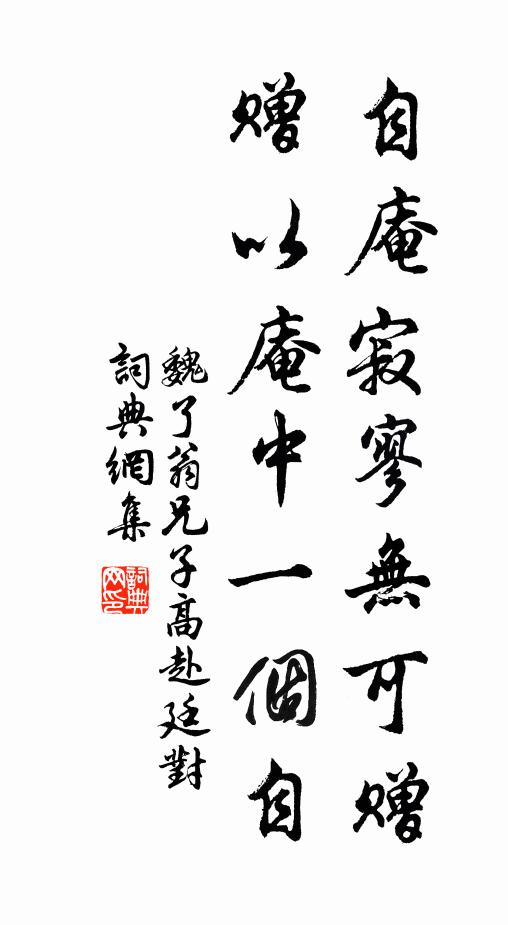 自庵寂寥無可贈
贈以庵中一個自
魏了翁兄子高赴廷對
詞典網集
詞典網印